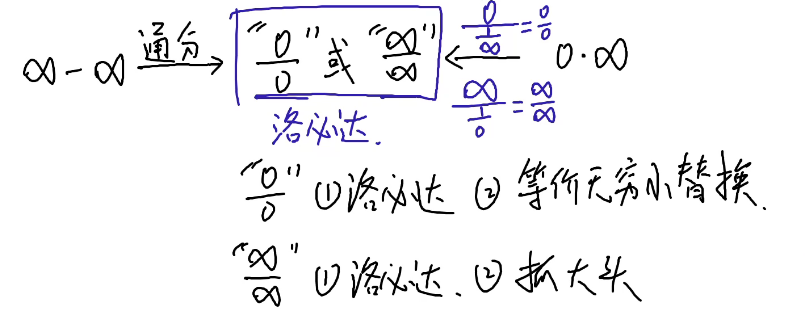 ∞-∞ 通分 → "0/0" 或 "∞/∞" ← 0·∞
0/(1/∞)=0/0
∞/(1/0)=∞/∞
洛必达.
"0/0" ①洛必达 ②等价无穷小替换.
"∞/∞" ①洛必达. ②抓大头